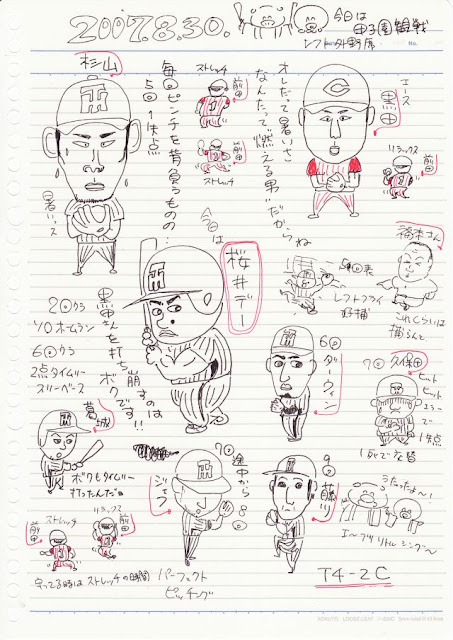 2007.8.30.
今日は
甲子園観戦
レフト外野席
杉山
暑いっス
毎回ピンチを背負うものの…
5回1失点
ストレッチ
前田
前田
ストレッチ
オレだって暑いさ
なんたって"燃える男"だからね
エース
黒田
C
リラックス
前田
今日は
桜井デー
20ウラ
ソロホームラン
60ウラ
2点タイムリー
スリーベース
黒田さんを打ち崩すのは
ボクです!!
レフトフライ
好捕
桧木さん
これくらいは
捕らんと
60
ダーウィン
70
久保田
ヒット
ヒット
エラー
で
1失点
1死で交替
葛城
ボクもタイムリー
打ったんだヨ
ストレッチ
前田
リラックス
前田
守ってる時はストレッチの時間
70
途中から
80
ジェフ
パーフェクト
ピッチング
90
藤川
うたったよ〜!
T4-2C
KOKUYO LOOSE-LEAF